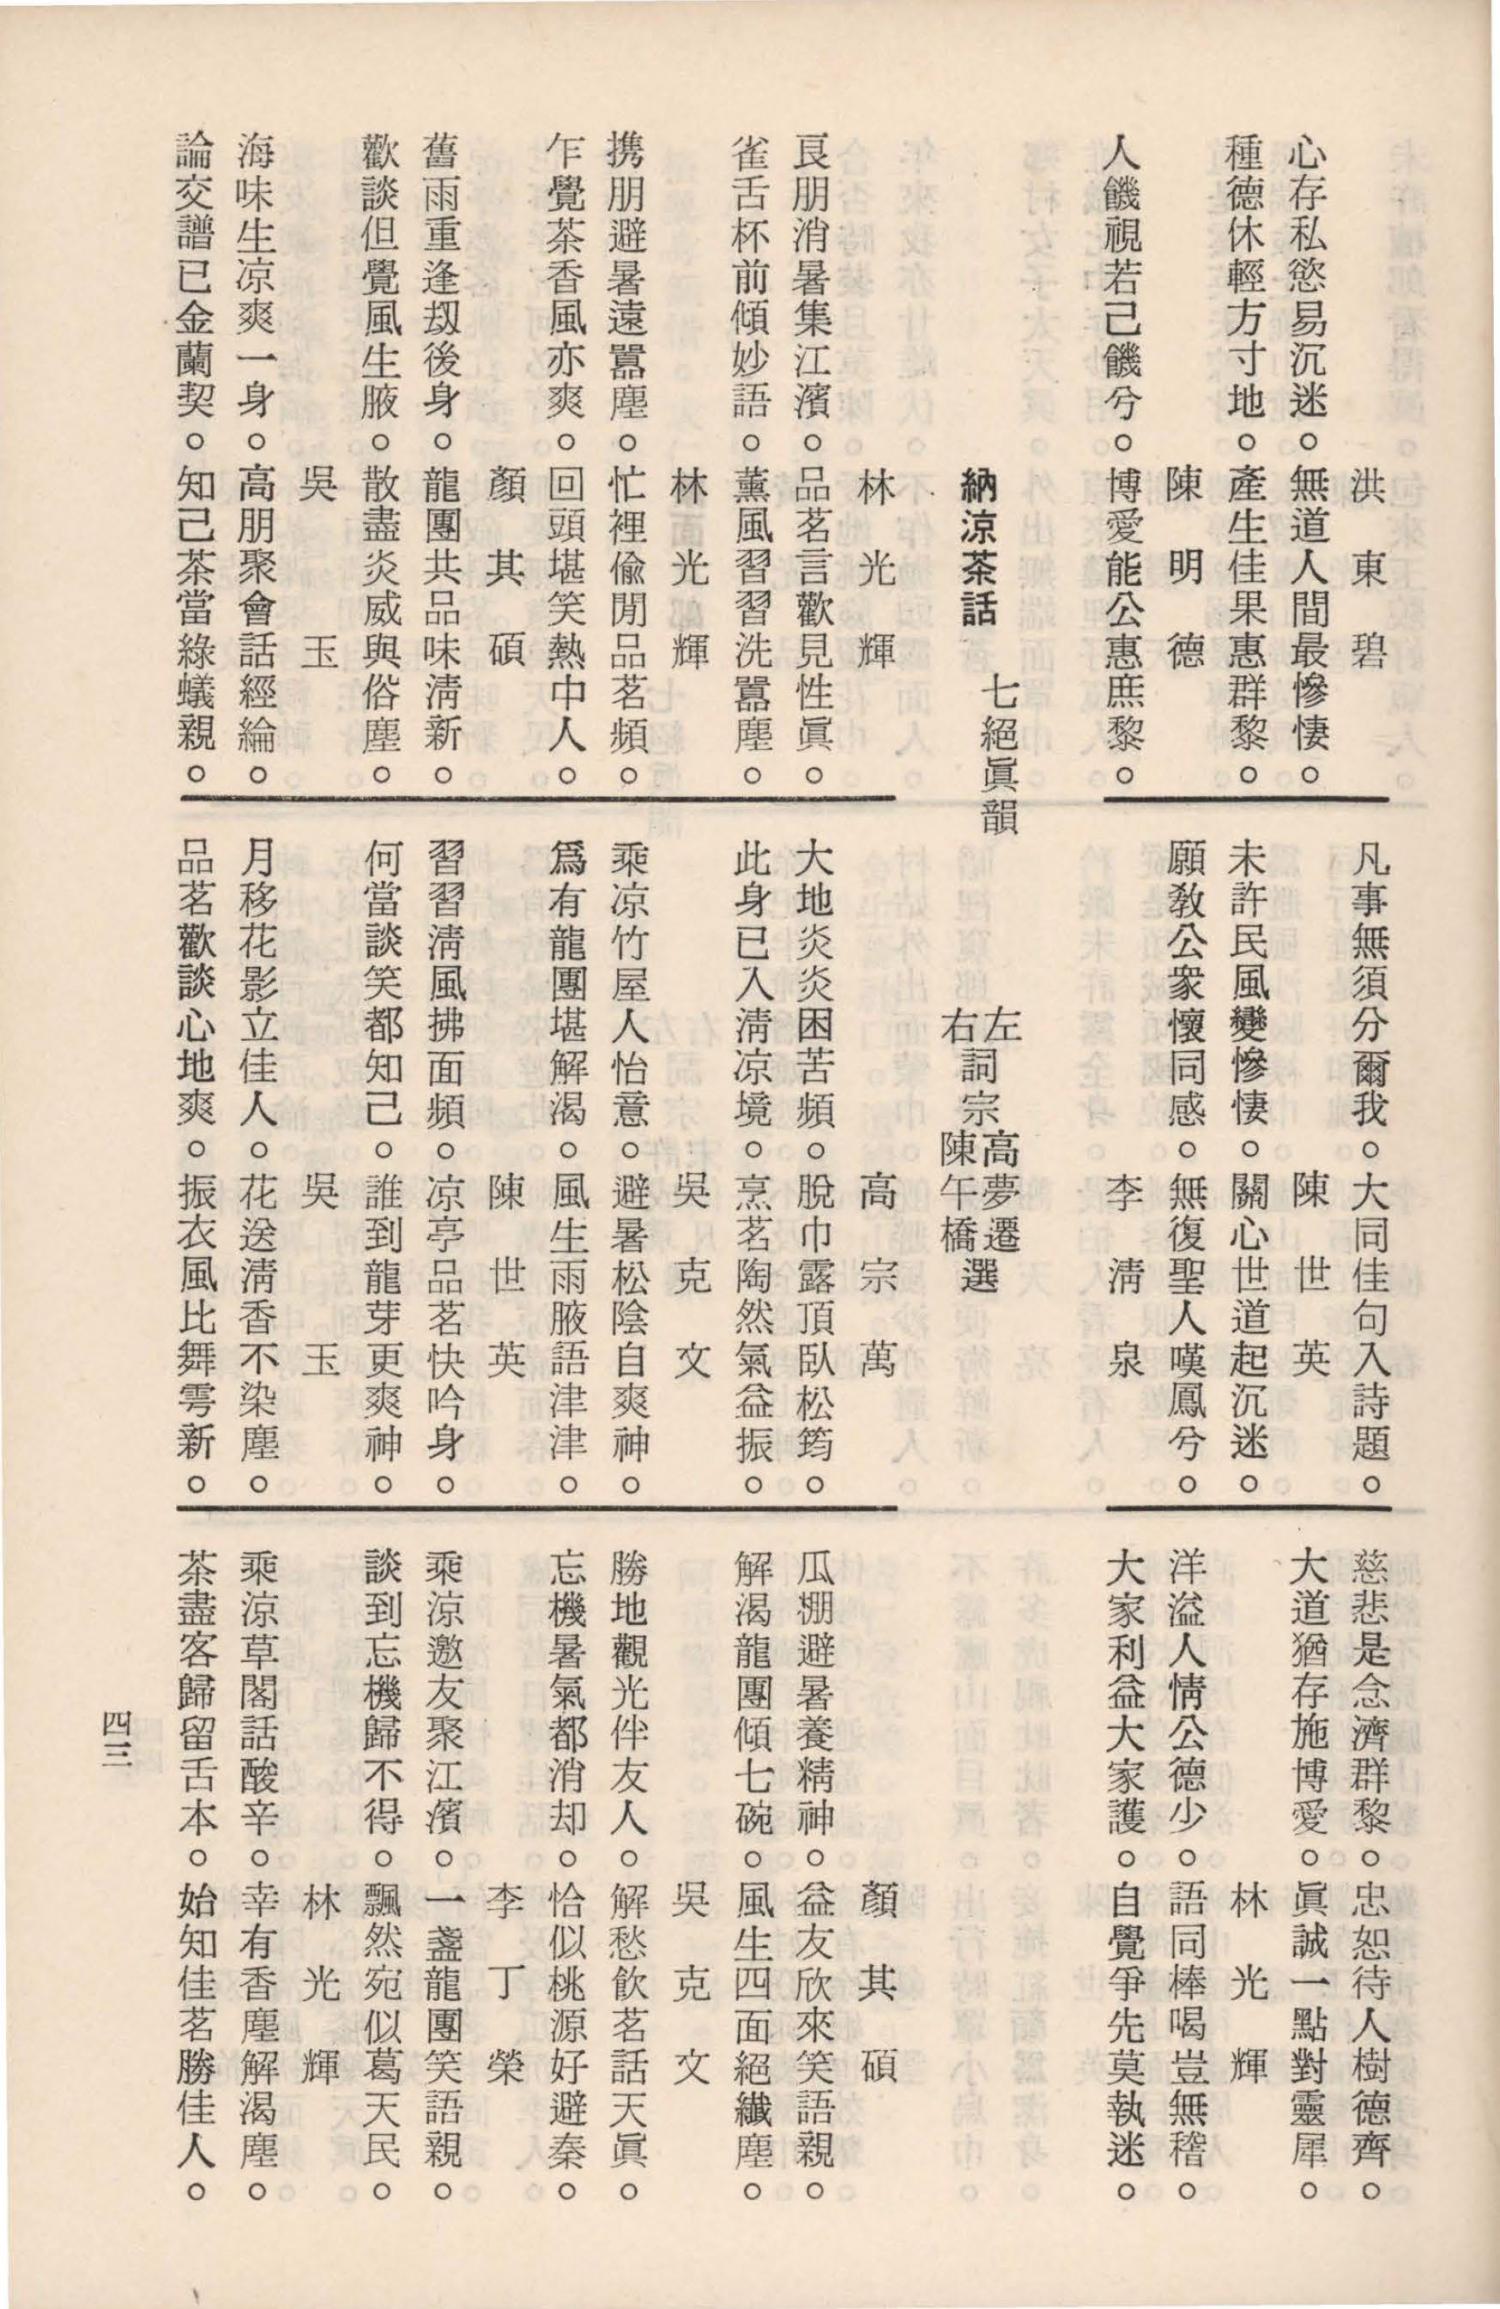 洪東碧
心存私慾易沉迷。無道人間最慘悽。
種德休輕方寸地。產生佳果惠群黎。
陳明德
人饑視若己饑兮。博愛能公惠庶黎。
凡事無須分爾我。大同佳句入詩題。
陳世英
未許民風變慘悽。關心世道起沉迷。
願敎公衆懷同感。無復聖人嘆鳳兮。
李淸泉
慈悲是念濟群黎。忠恕待人樹德齊。
大道猶存施博愛。眞誠一點對靈犀。
林光輝
洋溢人情公德少。語同棒喝豈無稽。
大家利益大家護。自覺爭先莫執迷。
納涼茶話 七絕眞韻
左詞宗高夢遷選
右詞宗陳午橋選
林光輝
良朋消暑集江濱。品茗言歡見性眞。
雀舌杯前傾妙語。薰風習習洗囂塵。
林光輝
携朋避暑遠囂塵。忙裡偸閒品茗頻。
乍覺茶香風亦爽。回頭堪笑熱中人。
顏其碩
舊雨重逢刼後身。龍團共品味淸新。
歡談但覺風生腋。散盡炎威與俗塵。
吳玉
海味生凉爽一身。高朋聚會話經綸。
論交譜已金蘭契。知己茶當綠蟻親。
高宗萬
大地炎炎困苦頻。脫巾露頂臥松筠。
此身已入淸凉境。烹茗陶然氣益振。
吳克文
乘凉竹屋人怡意。避暑松陰自爽神。
爲有龍團堪解渴。風生雨腋語津津。
陳世英
習習淸風拂面頻。凉亭品茗快吟身。
何當談笑都知己。誰到龍芽更爽神。
吳玉
月移花影立佳人。花送淸香不染塵。
品茗歡談心地爽。振衣風比舞雩新。
顏其碩
瓜棚避暑養精神。益友欣來笑語親。
解渴龍團傾七碗。風生四面絕纖塵。
吳克文
勝地觀光伴友人。解愁飮茗話天眞。
忘機暑氣都消却。恰似桃源好避秦。
李丁榮
乘涼邀友聚江濱。一盞龍團笑語親。
談到忘機歸不得。飄然宛似葛天民。
林光輝
乘涼草閣話酸辛。幸有香塵解渴塵。
茶盡客歸留舌本。始知佳茗勝佳人。
四三